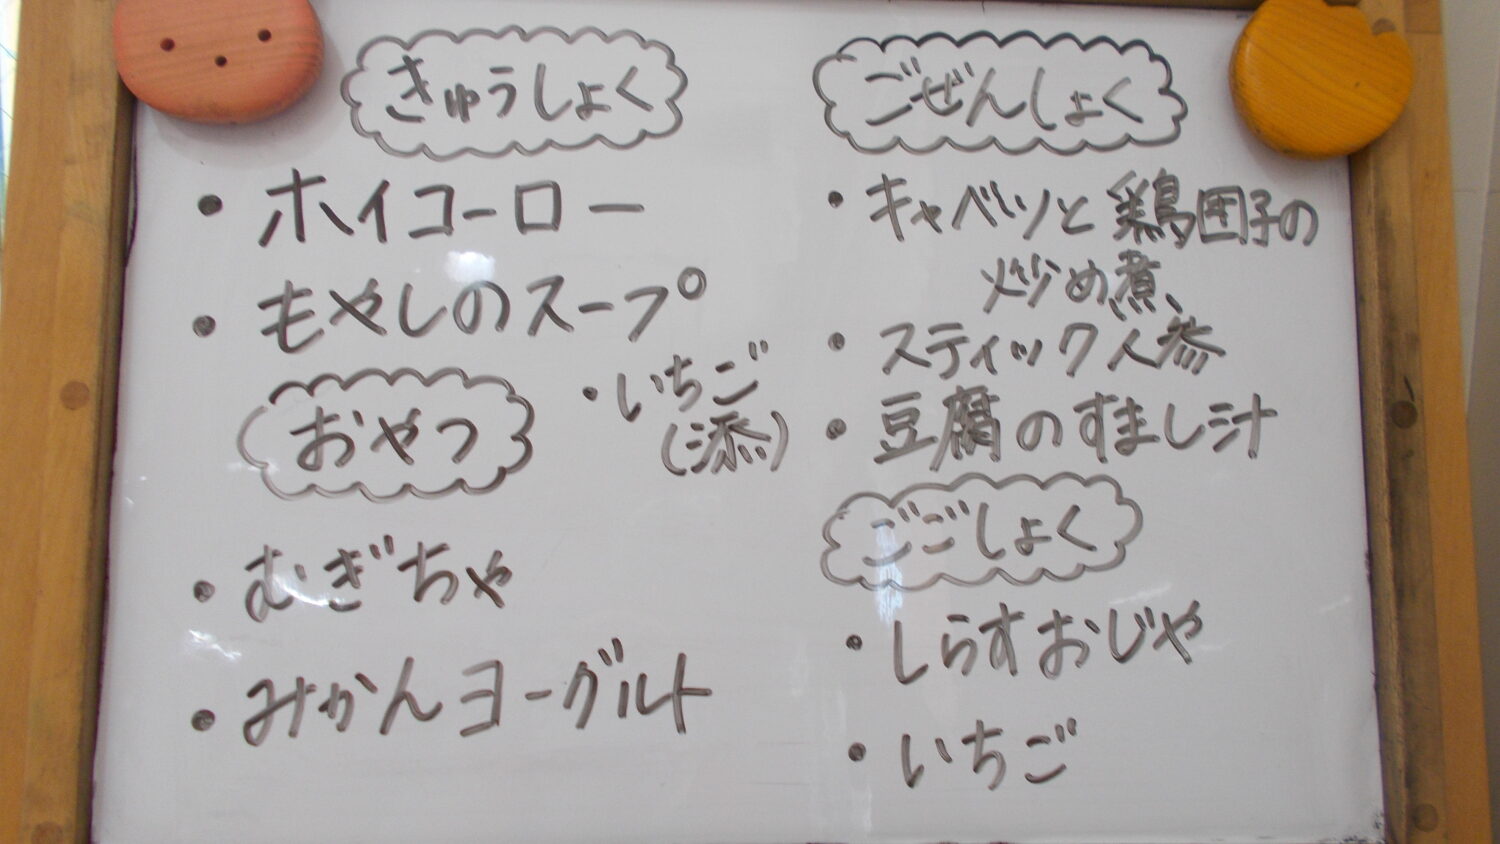 きゅうしょく
・ホイコーロー
・もやしのスープ
・いちご
(添)
おやつ
・むぎちゃ
・みかんヨーグルト
ごぜんしょく
・キャベツと鶏団子の
炒め煮
・スティック人参
・豆腐のすまし汁
ごごしょく
・しらすおじや
・いちご